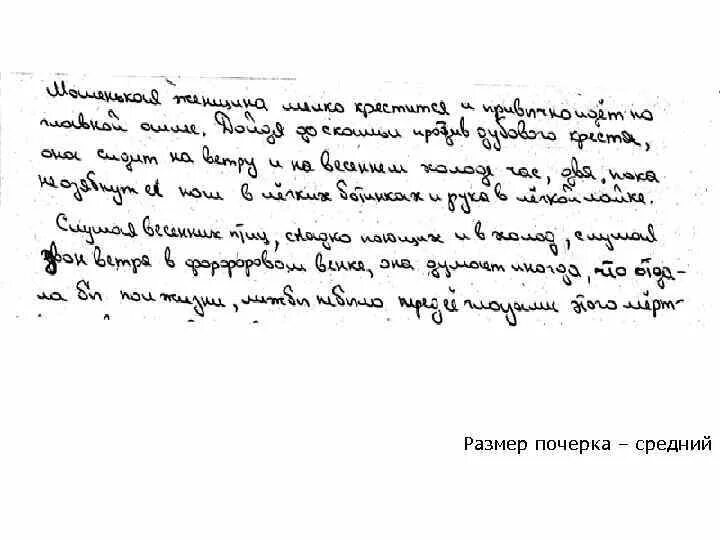 Маленькая женщина мелко крестится и привычно идёт по
главной аллее. Дойдя до скамьи против дубового креста,
она сидит на ветру и на весеннем холоде час, два, пока
не озябнут её ноги в лёгких ботинках и рука в лёгкой лайке.
Слушая весенних птиц, сладко поющих и в холод, слушая
звон ветра в фарфоровом венке, она думает иногда, что отда-
ла бы пол жизни, лишь бы не было перед её глазами этого мёрт-
Размер почерка – средний